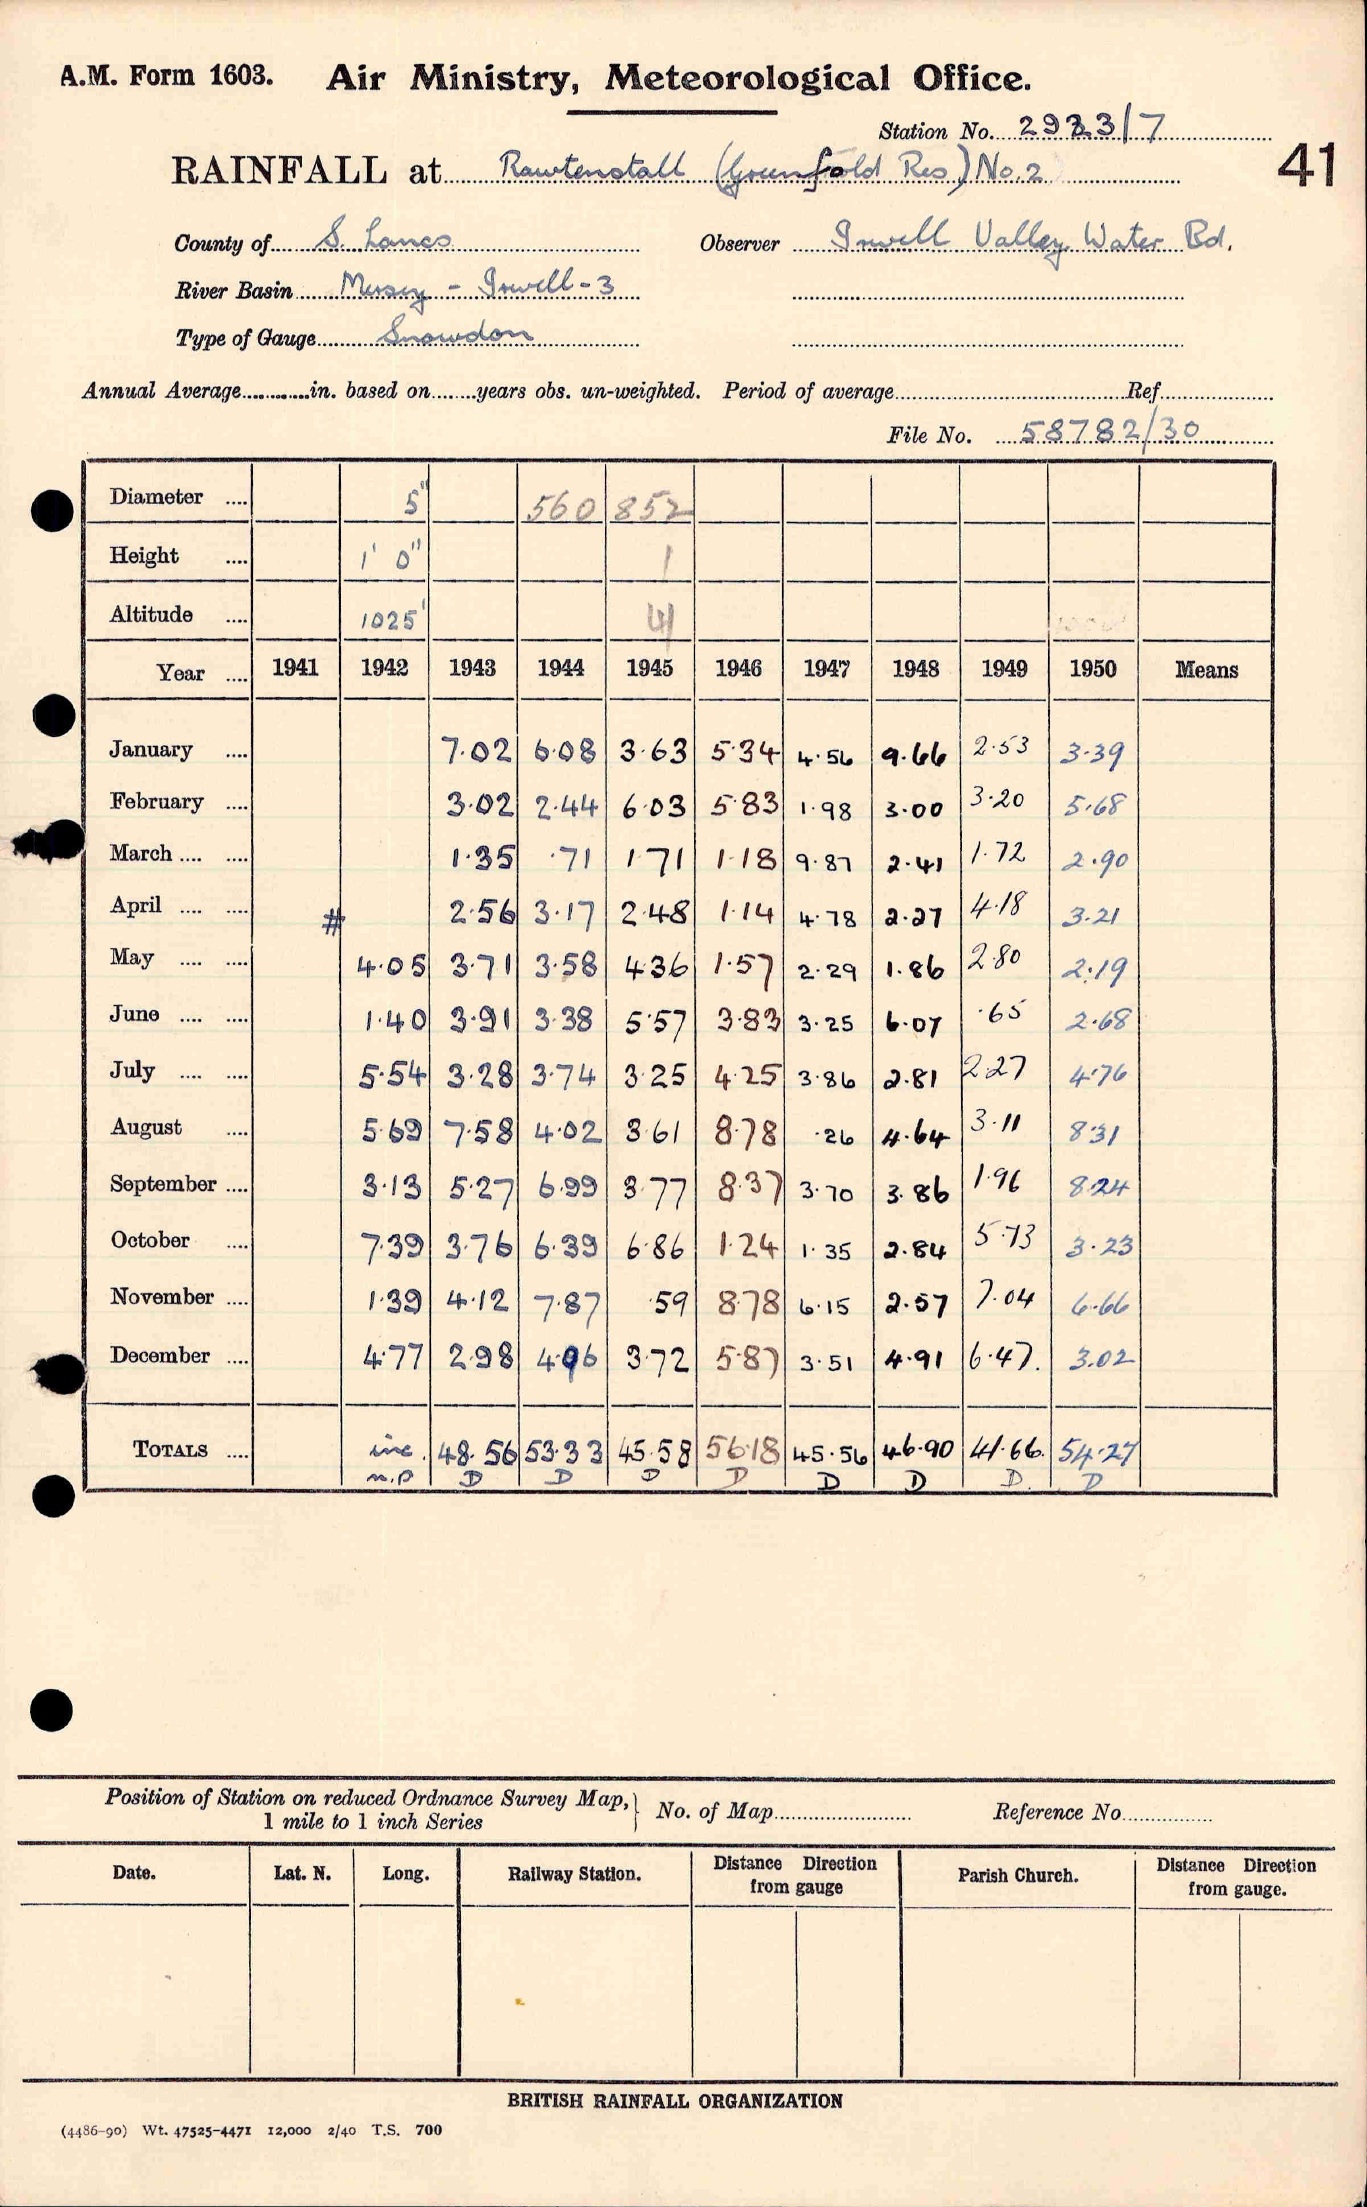 A.M. Form 1603. Air Ministry, Meteorological Office.
Station No. 2923/7
41
RAINFALL at Rawtenstall (Greenfold Res) No. 2
County of S. Lancs Observer Irwell Valley Water Bd.
River Basin Mersey - Irwell - 3
Type of Gauge Snowdon
Annual Average............in. based on........years obs. un-weighted. Period of average Ref
File No. 58782/30
Diameter .... 5" 560 852
Height .... 1' 0" 1
Altitude .... 1025'
Year .... 1941 1942 1943 1944 1945 1946 1947 1948 1949 1950 Means
January .... 7.02 6.08 3.63 5.34 4.56 9.66 2.53 3.39
February .... 3.02 2.44 6.03 5.83 1.98 3.00 3.20 5.68
March .... .... 1.35 .71 1.71 1.18 9.87 2.41 1.72 2.90
April .... .... # 2.56 3.17 2.48 1.14 4.78 2.27 4.18 3.21
May .... .... 4.05 3.71 3.58 4.36 1.57 2.29 1.86 2.80 2.19
June .... .... 1.40 3.91 3.38 5.57 3.83 3.25 6.07 .65 2.68
July .... .... 5.54 3.28 3.74 3.25 4.25 3.86 2.81 2.27 4.76
August .... 5.69 7.58 4.02 3.61 8.78 .26 4.64 3.11 8.31
September .... 3.13 5.27 6.99 3.77 8.37 3.70 3.86 1.96 8.24
October .... 7.39 3.76 6.39 6.86 1.24 1.35 2.84 5.73 3.23
November .... 1.39 4.12 7.87 .59 8.78 6.15 2.57 7.04 6.66
December .... 4.77 2.98 4.96 3.72 5.87 3.51 4.91 6.47. 3.02
TOTALS .... inc. 48.56 53.33 45.58 56.18 45.56 46.90 41.66. 54.27
n.p D D D D D D D. D
Position of Station on reduced Ordnance Survey Map,
1 mile to 1 inch Series
No. of Map Reference No
Date. Lat. N. Long. Railway Station. Distance Direction from gauge Parish Church. Distance Direction from gauge.
BRITISH RAINFALL ORGANIZATION
(4486-90) Wt. 47525-4471 12,000 2/40 T.S. 700